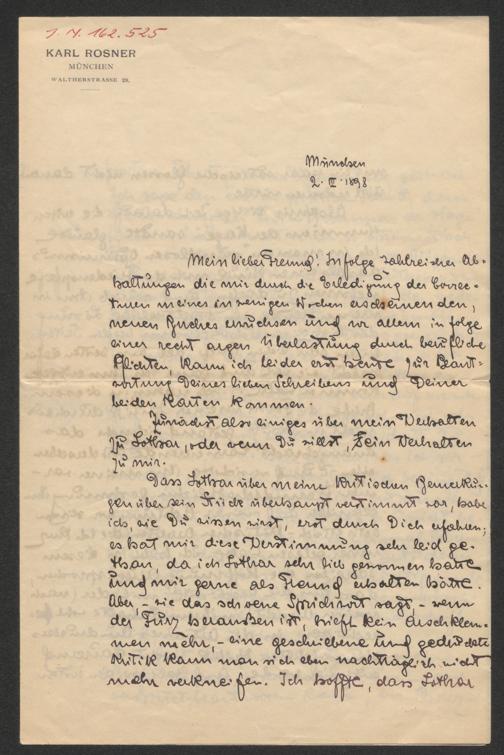 J. N. 162.525
KARL ROSNER
MÜNCHEN
WALTHERSTRASSE 29.
München
2. III. 1898
Mein lieber Freund! Infolge zahlreicher Ab-
haltungen die mir durch die Erledigung der Correc-
turen meines in wenigen Wochen erscheinenden,
neuen Buches erwuchsen und vor allem in folge
einer recht argen Überlastung durch berufliche
Pflichten, kann ich leider erst heute zur Beant-
wortung Deines lieben Schreibens und Deiner
beiden Karten kommen.
Zunächst also einiges über mein Verhalten
zu Lothar, oder wenn Du willst, sein Verhalten
zu mir.
Dass Lothar über meine kritischen Bemerkun-
gen über sein Stück überhaupt verstimmt war, habe
ich, wie Du wissen wirst, erst durch Dich erfahren;
es hat mir diese Verstimmung sehr leid ge-
than, da ich Lothar sehr lieb gewonnen hatte
und mir gerne als Freund erhalten hätte.
Aber, – wie das schoene Sprichwort sagt, – wenn
der Furz heraussen ist, hilft kein Arschklem-
men mehr, – eine geschriebene und gedruckte
Kritik kann man sich eben nachträglich nicht
mehr verkneifen. Ich hoffte, dass Lothar